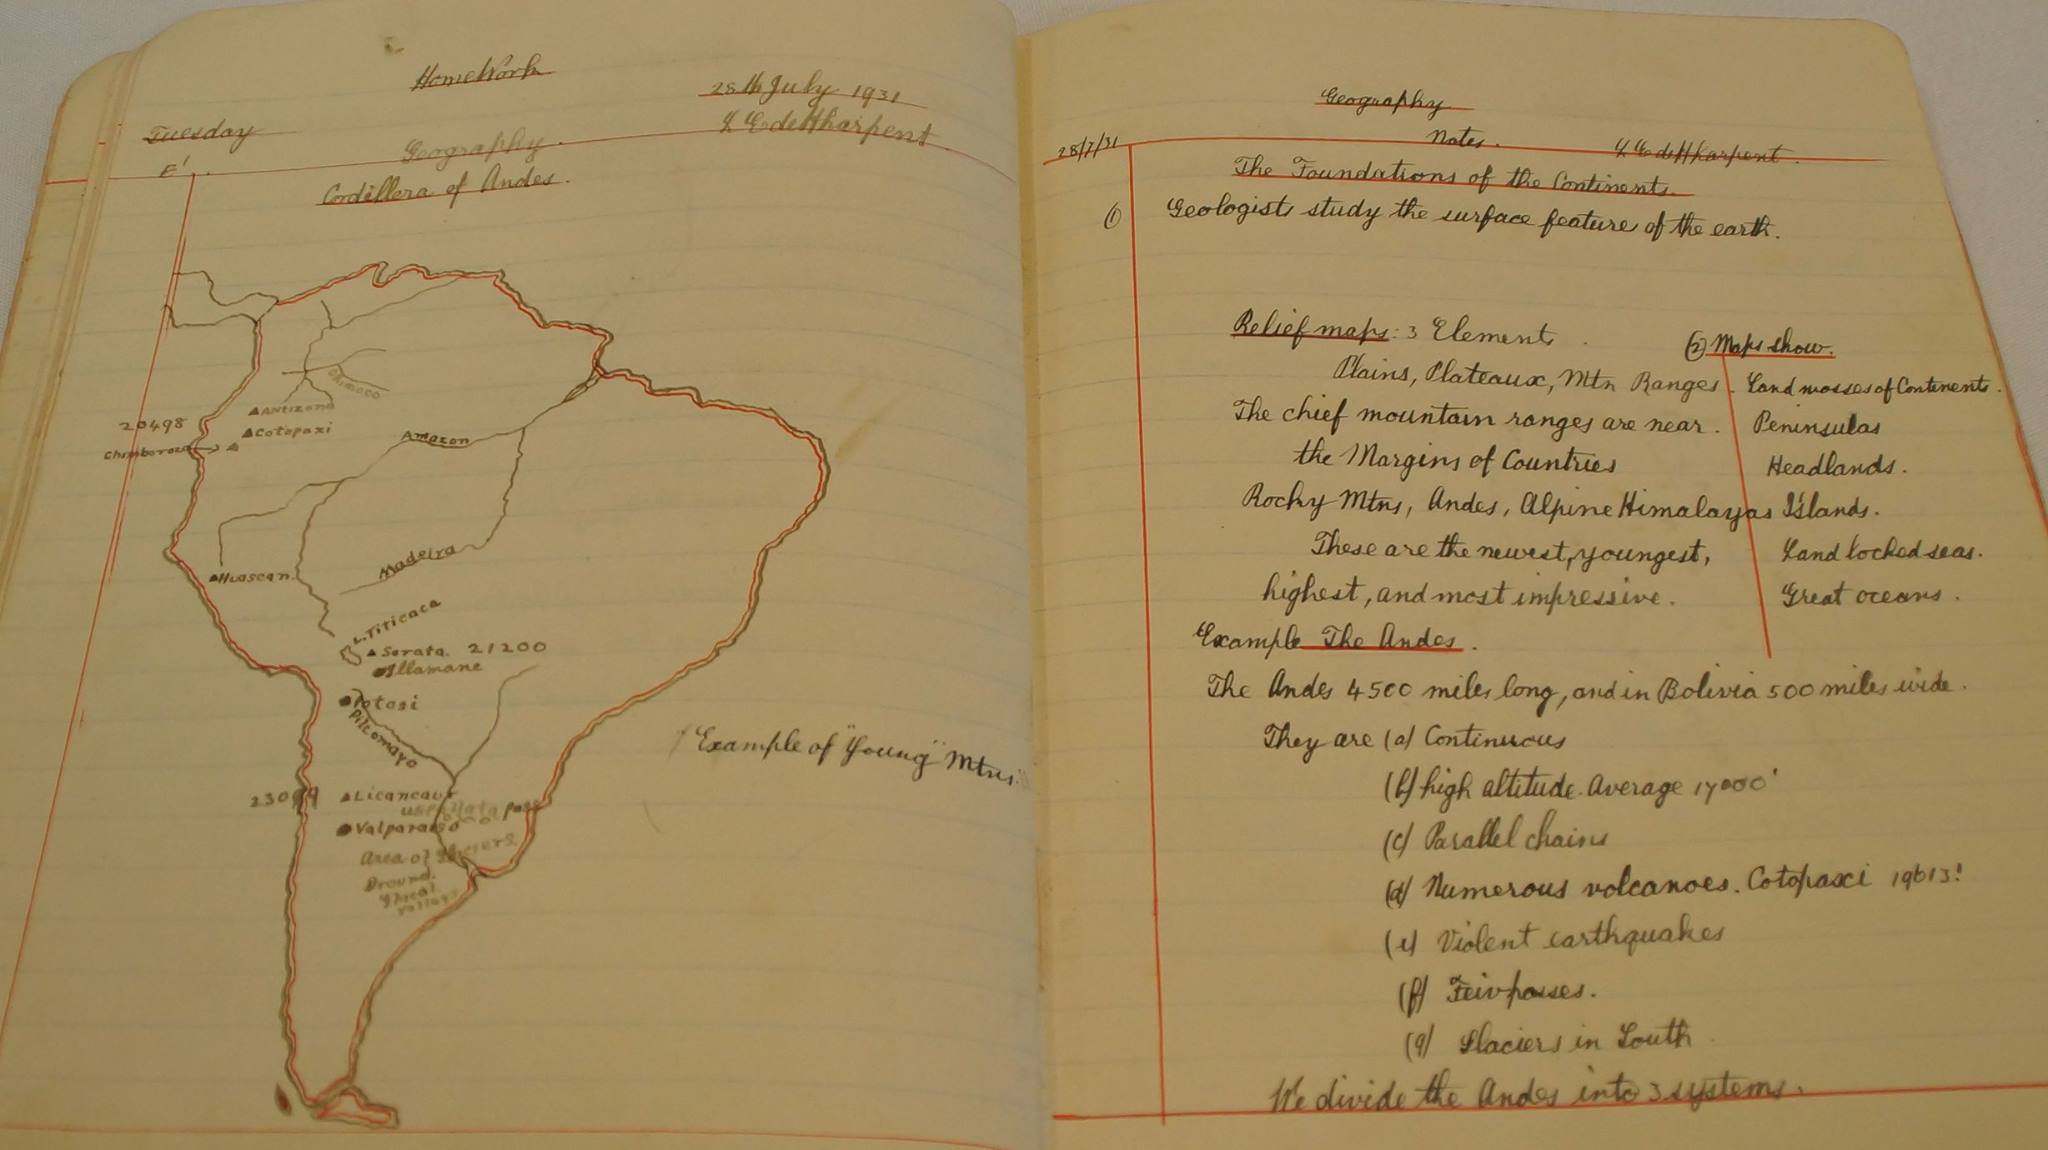 HomeWork
28th July 1931
Tuesday
L E de Hharpent
Geography.
E'.
Cordillera of Andes.
Orinoco
Antizana
20498
Cotopaxi
Chimborazo
Amazon
Madeira
Huascan.
L. Titicaca
Sorata. 21200
Illamane
Potosi
Pilcomayo
"Example of "Young" Mtns."
Licancaur
Uspallata pass
Valparaiso
Area of Glaciers
Ground.
Geography
28/7/31
Notes.
L E de Hharpent.
The Foundations of the Continents.
(1) Geologists study the surface features of the earth.
Relief maps: 3 Elements
Plains, Plateaux, Mtn Ranges.
The chief mountain ranges are near
the Margins of Countries
Rocky Mtns, Andes, Alpine Himalayas
These are the newest, youngest,
highest, and most impressive.
(2) Maps show.
Land masses of Continents.
Peninsulas
Headlands.
Islands.
Land locked seas.
Great oceans.
Example The Andes.
The Andes 4500 miles long, and in Bolivia 500 miles wide.
They are (a) Continuous
(b) high altitude. Average 17000'
(c) Parallel chains
(d) Numerous volcanoes. Cotopaxi 19613'
(e) Violent earthquakes
(f) Few passes.
(g) Glaciers in South
We divide the Andes into 3 systems.